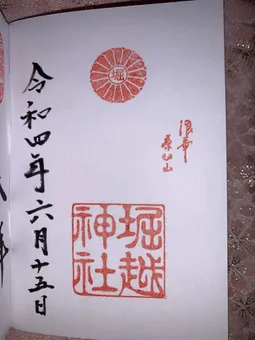 堀
浪華
茶臼山
堀越
神社
令和四年六月十五日